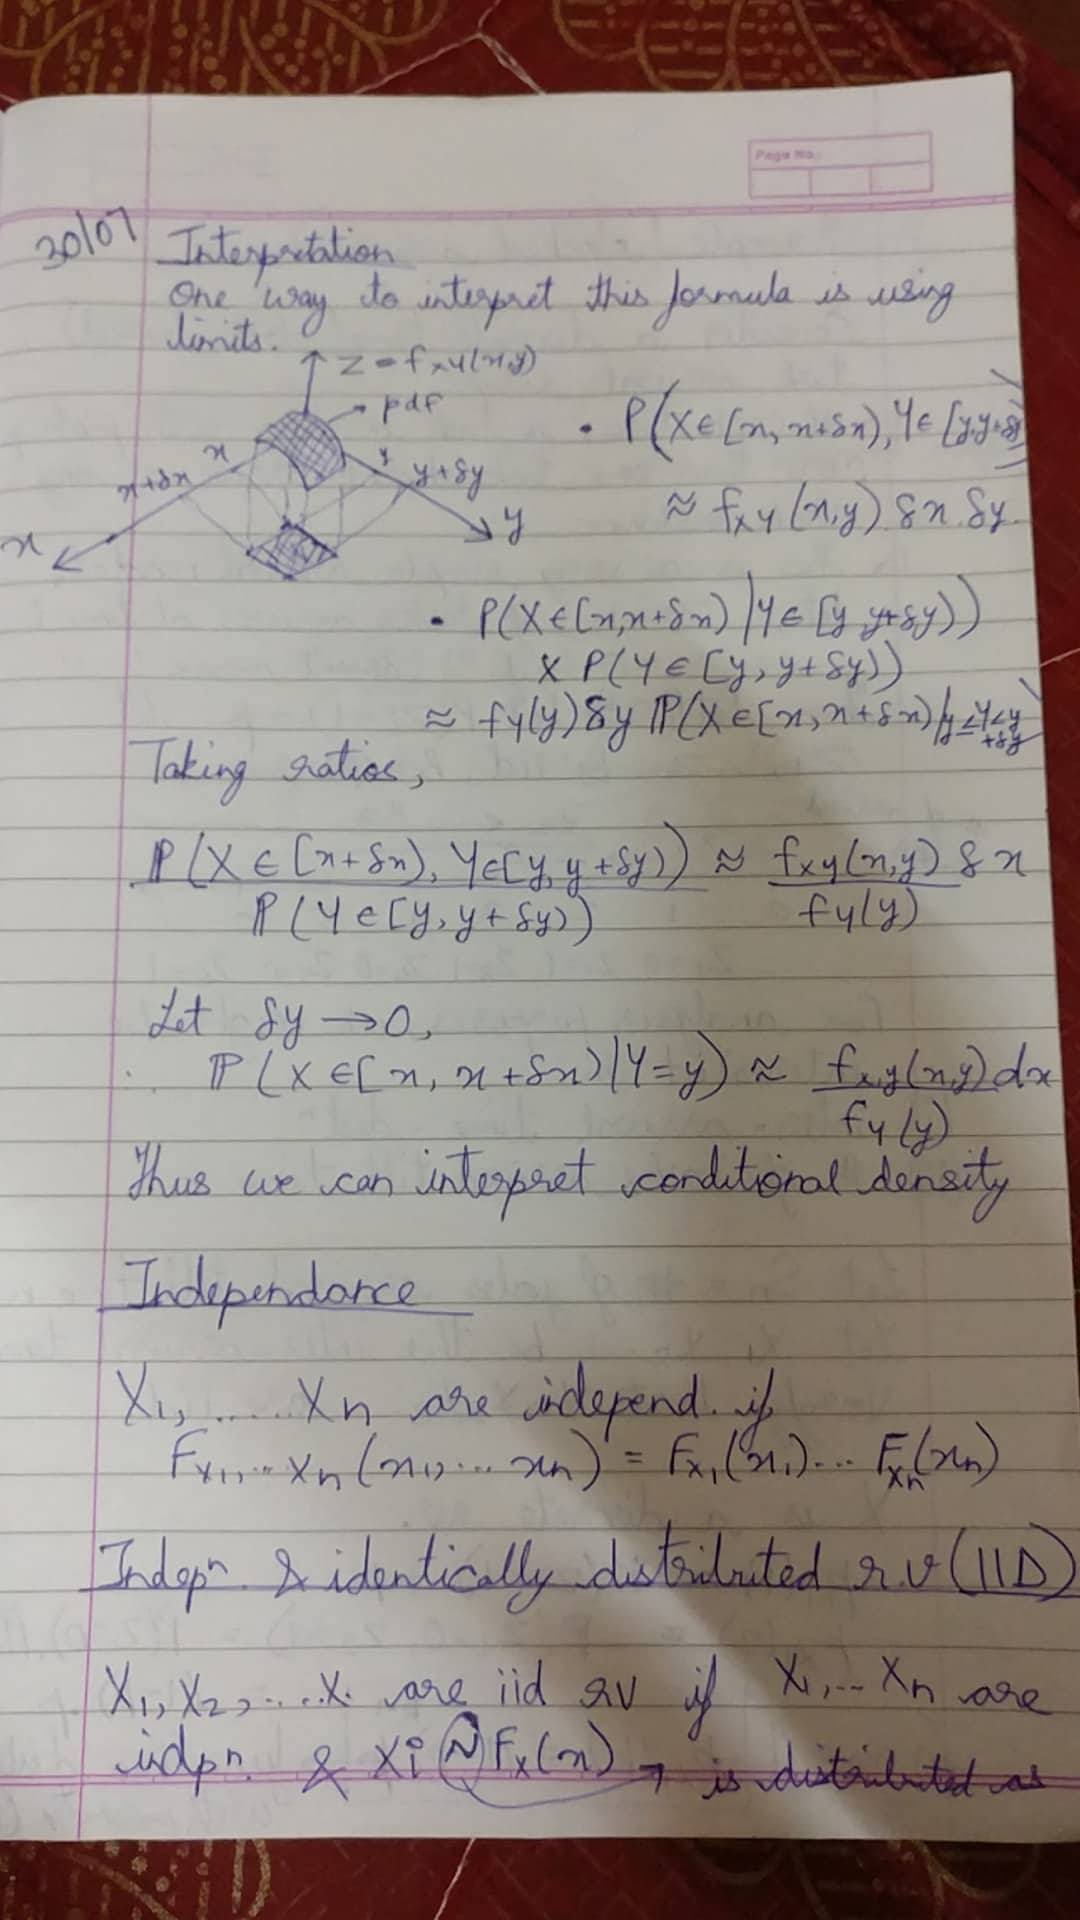 Page No.:
30/07
Interpretation
One way to interpret this formula is using
limits.
z = f_xy(x,y)
pdf
x
x+δx
y
y+δy
x
y
• P(X∈[x, x+δx), Y∈[y,y+δy))
≈ f_xy(x,y) δx.δy.
• P(X∈[x,x+δx) | Y∈[y, y+δy))
x P(Y∈[y, y+δy))
≈ f_y(y)δy ℙ(X∈[x, x+δx)|y≤Y<y+δy)
Taking ratios,
ℙ(X∈[x+δx), Y∈[y, y+δy)) ≈ f_xy(x,y) δx
ℙ(Y∈[y, y+δy)) f_y(y)
Let δy → 0,
∴ ℙ(X∈[x, x+δx)|Y=y) ≈ f_x,y(x,y) dx
f_y(y)
Thus we can interpret conditional density
Independance
X₁, ..... Xn are independ. if
F_X₁,...Xn (x₁, ... xn) = F_X₁(x₁)... F_Xn(xn)
Indepⁿ. & identically distributed r.v (IID)
X₁, X₂, ....X. are iid rv if X₁,.. Xn are
indpⁿ. & Xi ~ F_X(x) → is distributed as